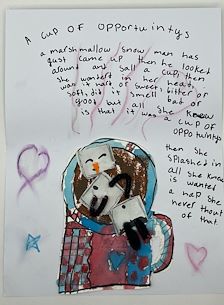 A CUP OF OPPOrtuNitys
a marshmallow snow man has
just came up then he looked
around and sall a cup, then
she wonderd in her head,
was it hard, or sweet, bitter or
soft, did it smell bad or
good but all she knew
is that it was a cup of
oppotuintys
then she
splashed in
all she knew
is wanted
a nap she
never thout
of that.